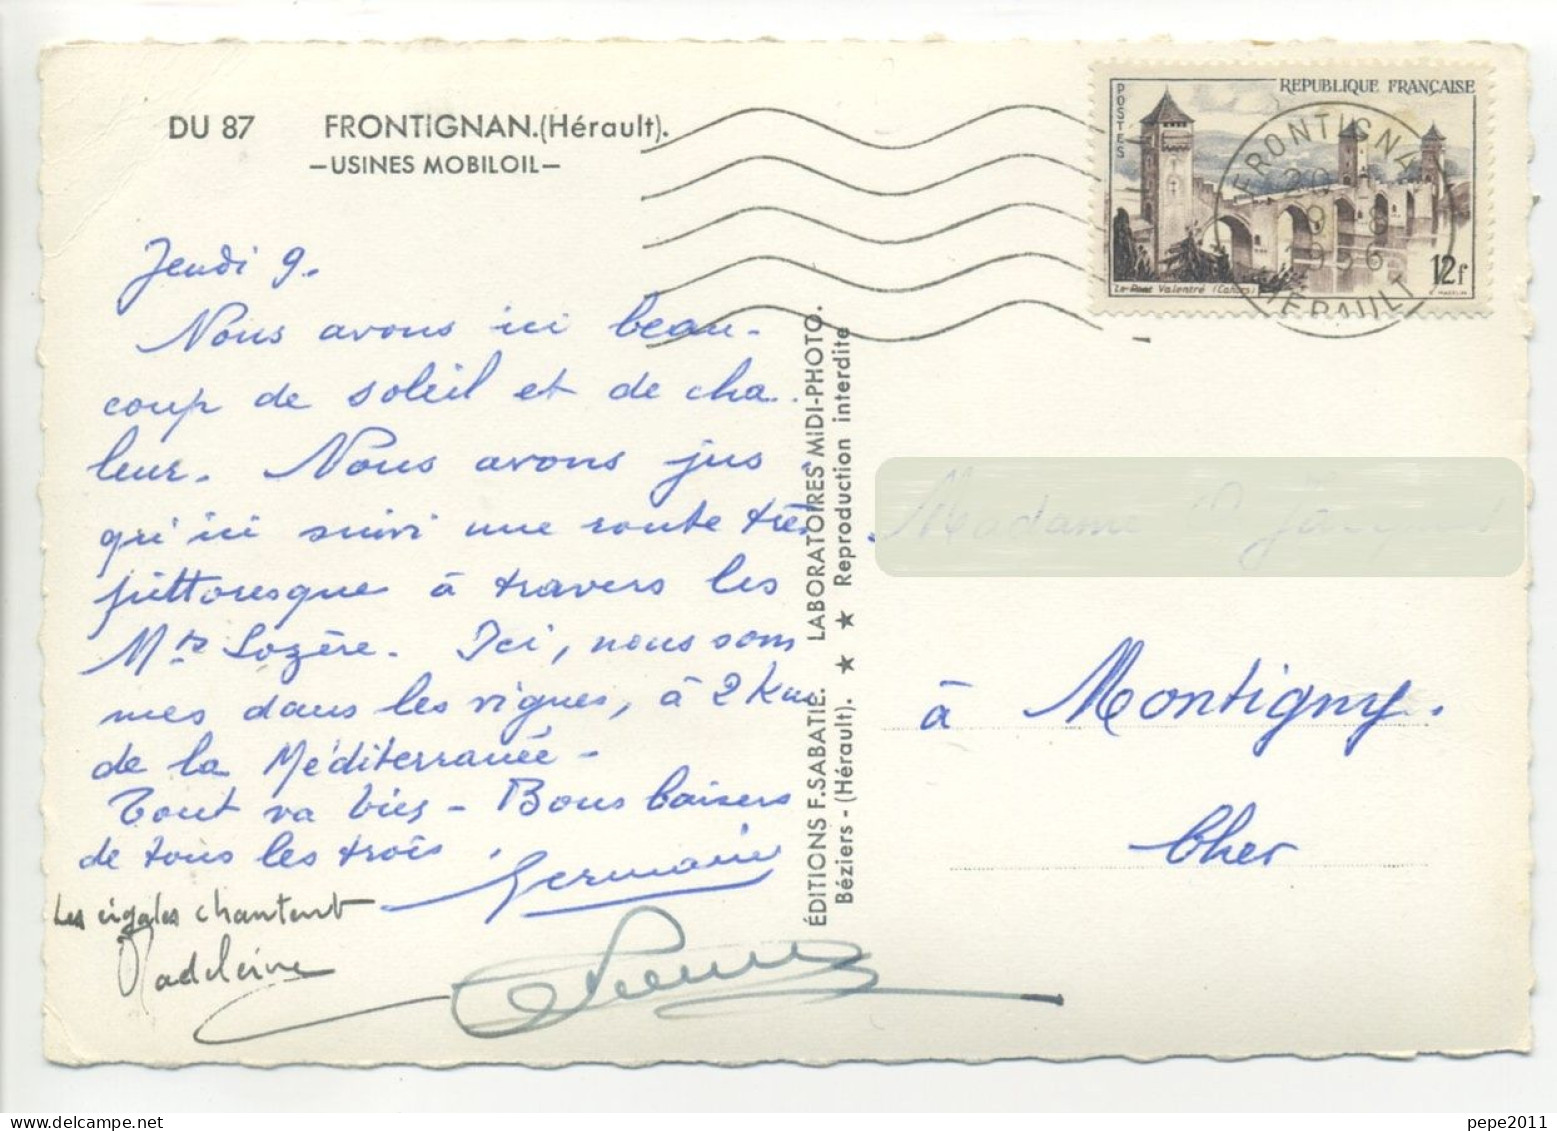 DU 87 FRONTIGNAN.(Hérault).
—USINES MOBILOIL—
Jeudi 9.
Nous avons ici beau-
coup de soleil et de cha-
leur. Nous avons jus
qu'ici suivi une route très
pittoresque à travers les
Mts Lozère. Ici, nous som
mes dans les vignes, à 2 Km
de la Méditerranée -
Tout va bien - Bons baisers
de tous les trois.
Germaine
Les cigales chantent
Madeleine
Pierre
ÉDITIONS F. SABATIE. LABORATOIRES MIDI-PHOTO.
Béziers - (Hérault). ★ ★ Reproduction interdite
POSTES
REPUBLIQUE FRANÇAISE
Le Pont Valentré (Cahors)
12f
FRONTIGNAN
20
9 8
1956
HERAULT
Madame
à Montigny.
Cher
pepe2011